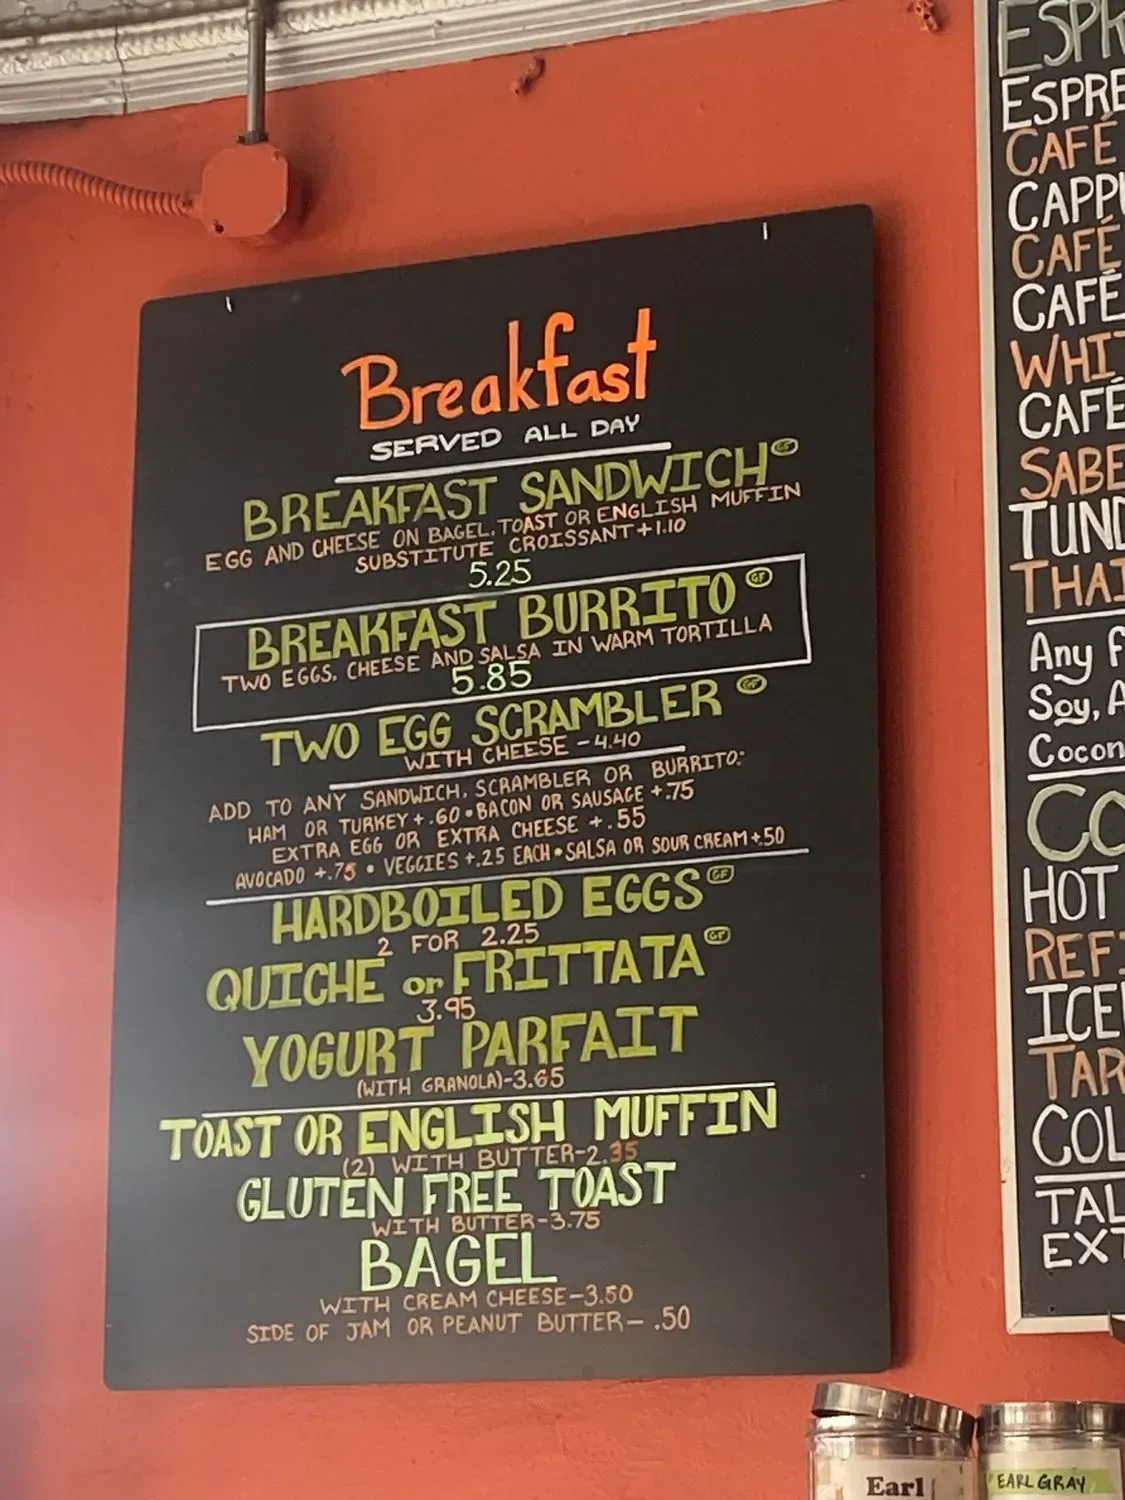 Breakfast
SERVED ALL DAY
BREAKFAST SANDWICH GF
EGG AND CHEESE ON BAGEL, TOAST OR ENGLISH MUFFIN
SUBSTITUTE CROISSANT +1.10
5.25
BREAKFAST BURRITO GF
TWO EGGS, CHEESE AND SALSA IN WARM TORTILLA
5.85
TWO EGG SCRAMBLER GF
WITH CHEESE - 4.40
ADD TO ANY SANDWICH, SCRAMBLER OR BURRITO:
HAM OR TURKEY +.60 • BACON OR SAUSAGE +.75
EXTRA EGG OR EXTRA CHEESE +.55
AVOCADO +.75 • VEGGIES +.25 EACH • SALSA OR SOUR CREAM +.50
HARDBOILED EGGS GF
2 FOR 2.25
QUICHE or FRITTATA GF
3.95
YOGURT PARFAIT
(WITH GRANOLA)-3.65
TOAST OR ENGLISH MUFFIN
(2) WITH BUTTER-2.35
GLUTEN FREE TOAST
WITH BUTTER-3.75
BAGEL
WITH CREAM CHEESE-3.50
SIDE OF JAM OR PEANUT BUTTER- .50
ESPR
ESPRE
CAFÉ
CAPPU
CAFÉ
CAFÉ
WHIT
CAFÉ
SABE
TUND
THAI
Any F
Soy, A
Cocon
CO
HOT
REF
ICE
TAR
COL
TAL
EXT
Earl
EARL GRAY